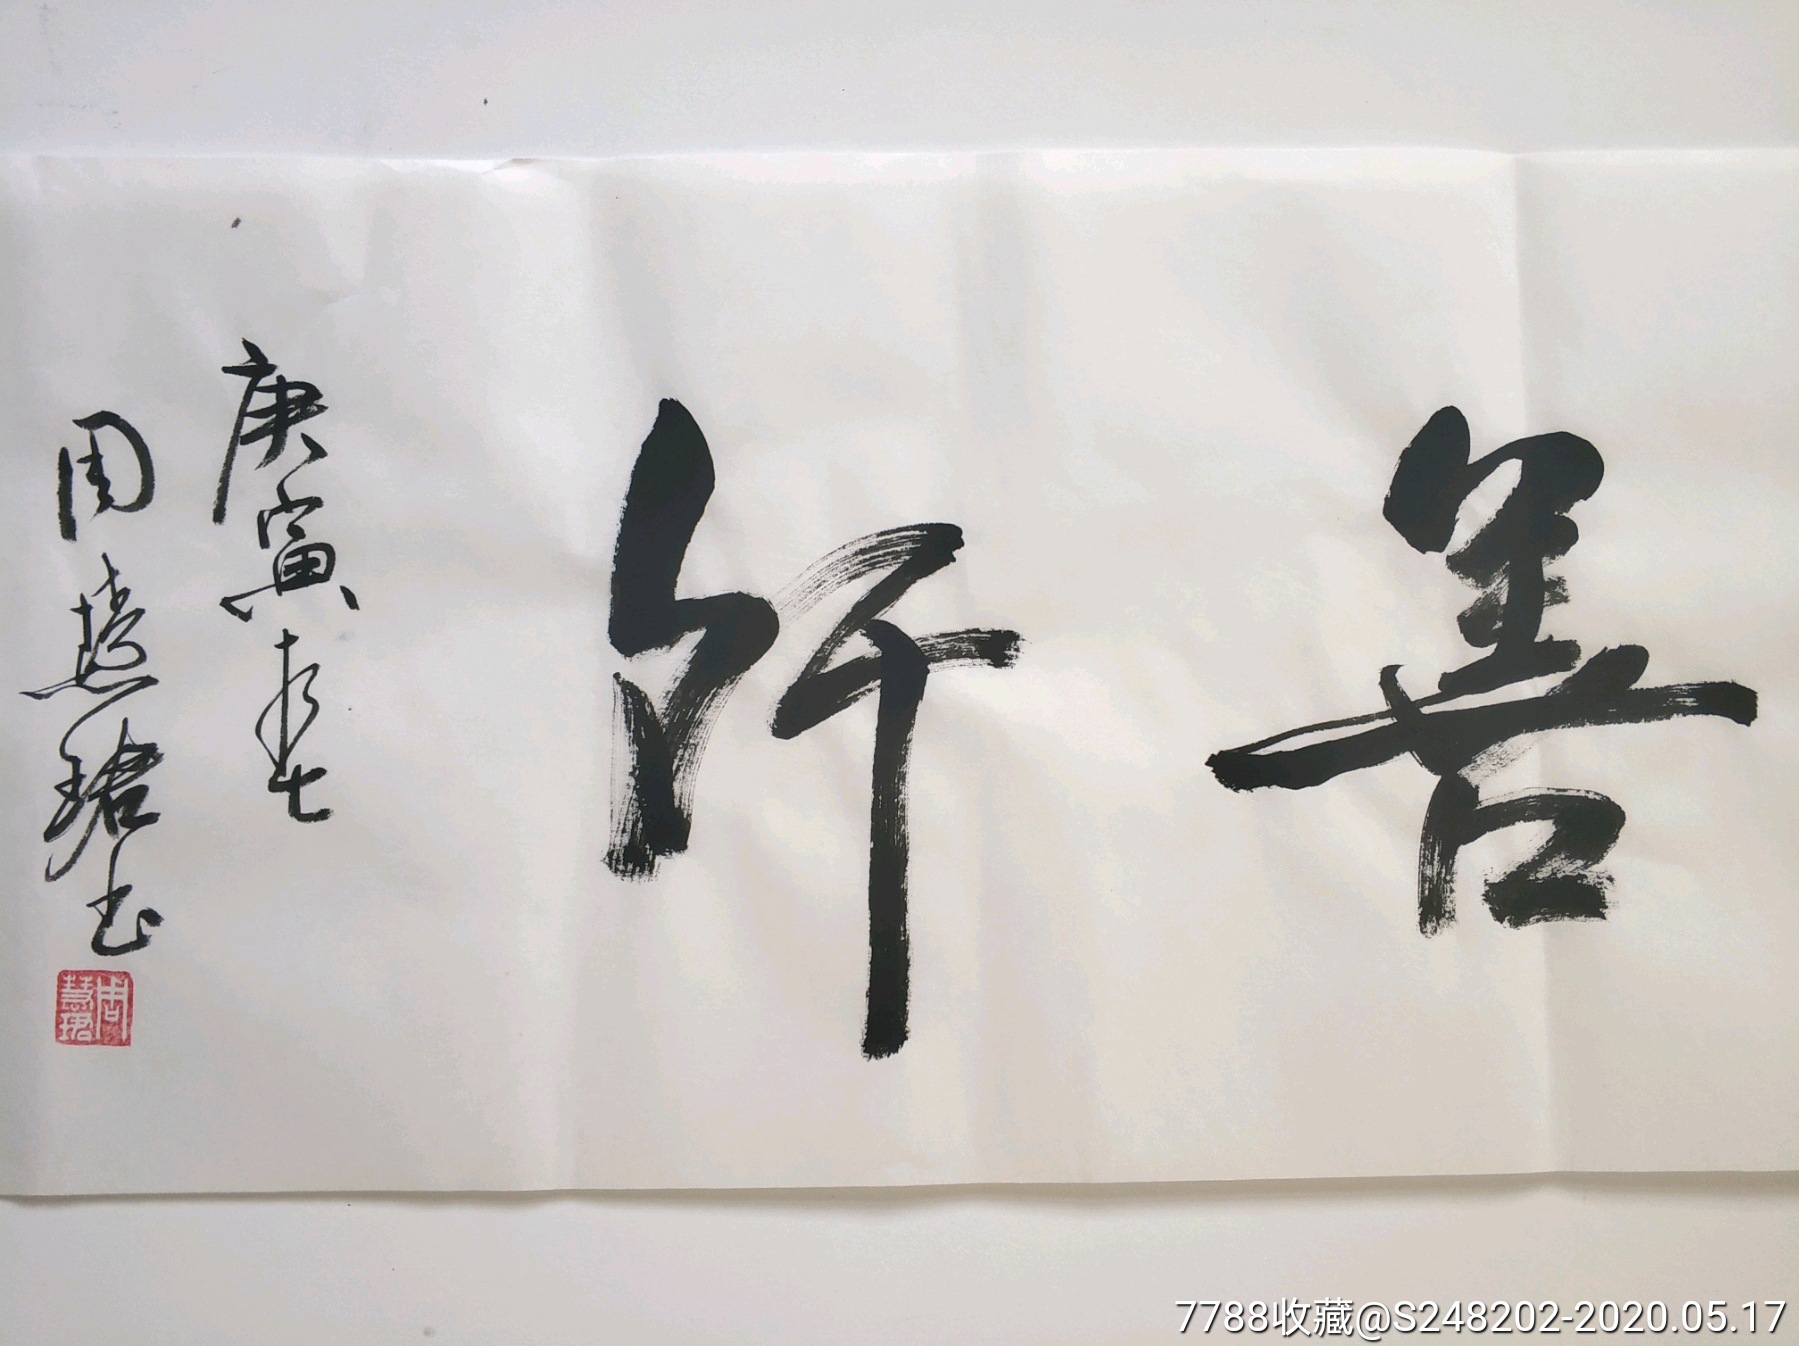 善行
庚寅
周慧珺书
周慧珺
7788收藏@S248202-2020.05.17